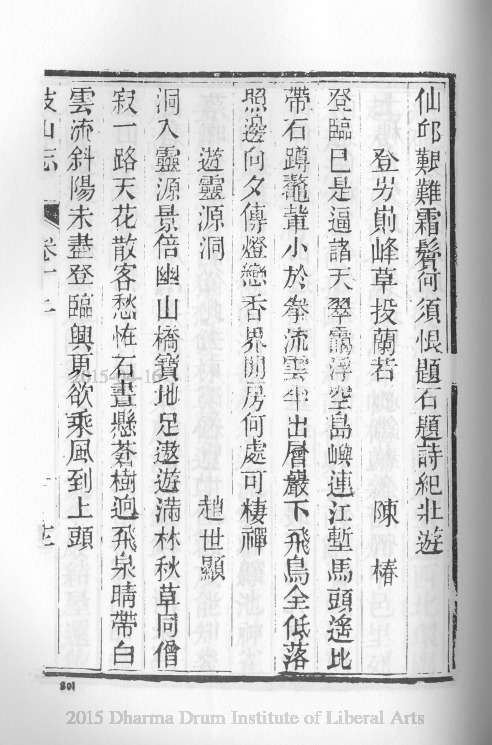 仙邱艱難霜鬢何須恨題石題詩紀壯遊
登屴崱峰草投蘭若　陳椿
登臨已是逼諸天翠靄浮空島嶼連江塹馬頭遙比
帶石蹲鼇背小於拳流雲半出層巖下飛鳥全低落
照邊向夕傳燈戀香界閒房何處可棲禪
遊靈源洞　趙世顯
洞入靈源景倍幽山橋寶地足遨遊滿林秋草同僧
寂一路天花散客愁恠石晝懸蒼樹迥飛泉晴帶白
雲流斜陽未盡登臨興更欲乘風到上頭
鼓山志　卷十二
801
2015 Dharma Drum Institute of Liberal Arts